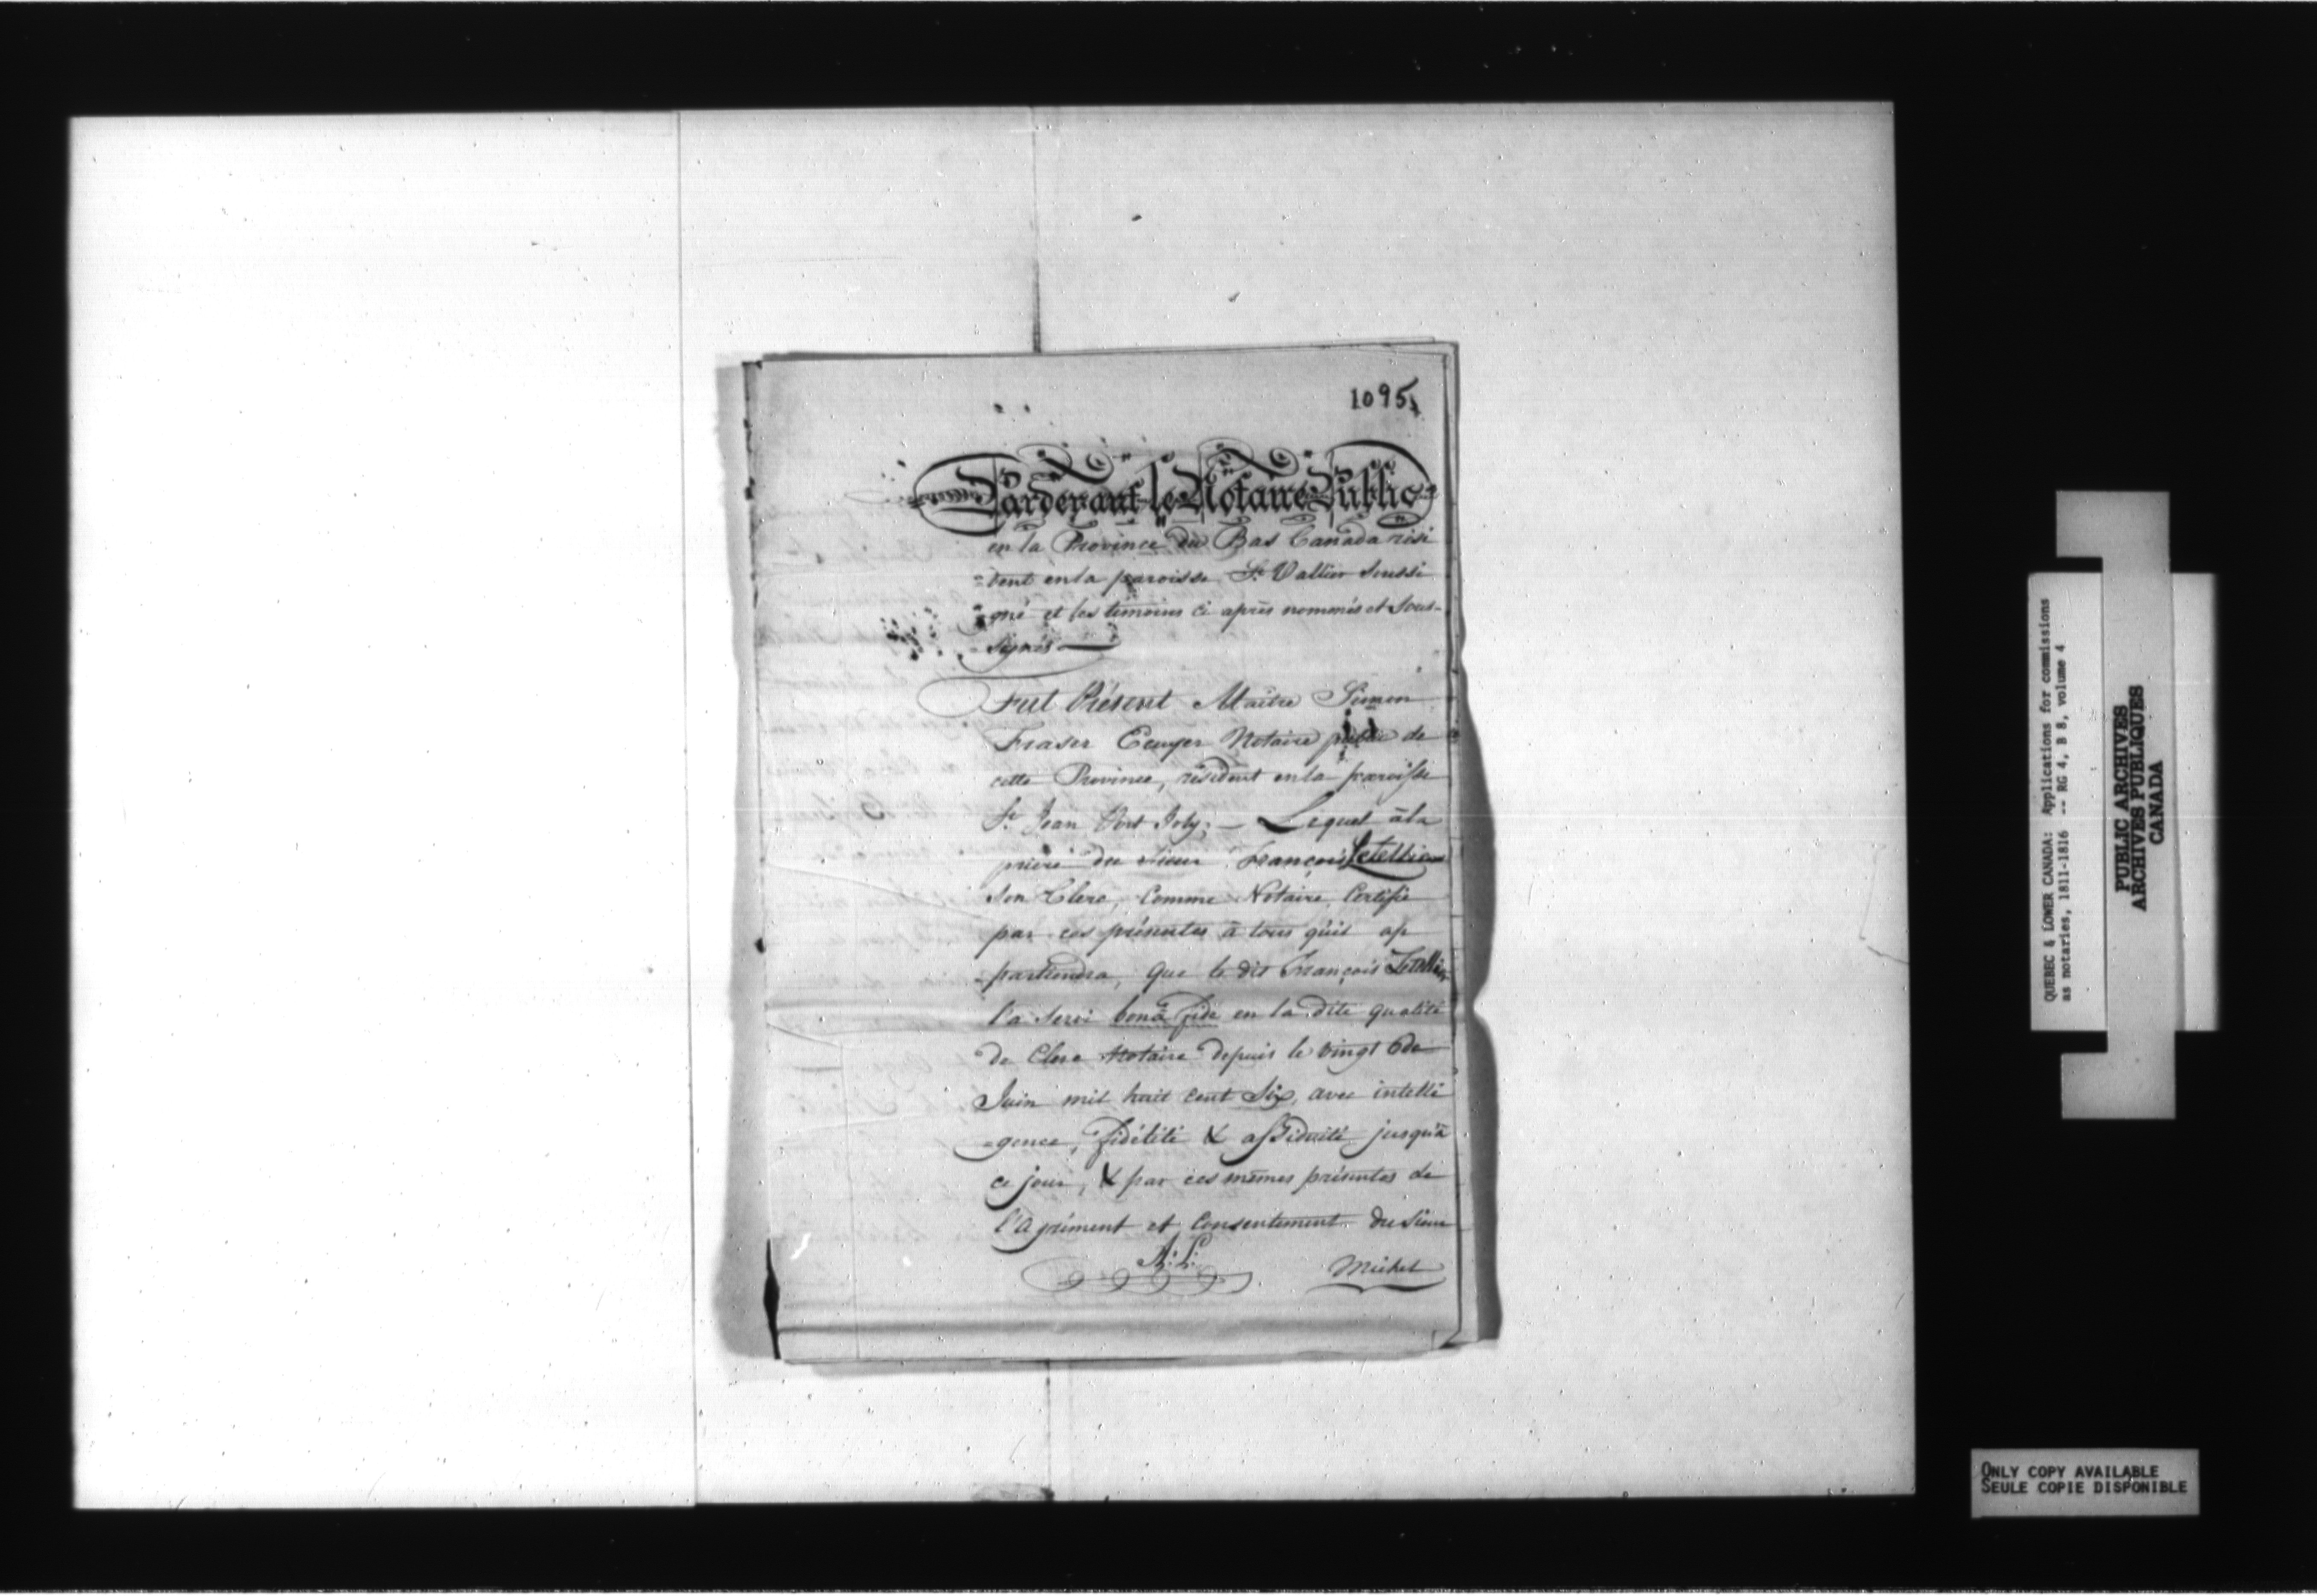 1095
Pardevant le Notaire Public
en la Province du Bas Canada rési
=dent en la paroisse St Vallier soussi
=gné et les témoins ci après nommés et sous-
=signés
Fut Présent Maître Simon
Fraser Ecuyer Notaire public de
cette Province, résident en la paroisse
St Jean Port Joly; — Lequel à la
prière du sieur François Letellier
son Clerc, comme Notaire, Certifie
par ces présentes à tous qu'il ap
=partiendra, que le dit François Letellier
l'a servi bonâ fide en la dite qualité
de Clerc Notaire depuis le vingt 6 de
Juin mil huit cent Six, avec intelli
=gence, fidélité & assiduité jusqu'à
ce jour, & par ces mêmes présentes de
l'Agrément et Consentement du Sieur
A: L:
Michel
QUEBEC & LOWER CANADA: Applications for commissions
as notaries, 1811-1816 -- RG 4, B 8, volume 4
PUBLIC ARCHIVES
ARCHIVES PUBLIQUES
CANADA
ONLY COPY AVAILABLE
SEULE COPIE DISPONIBLE